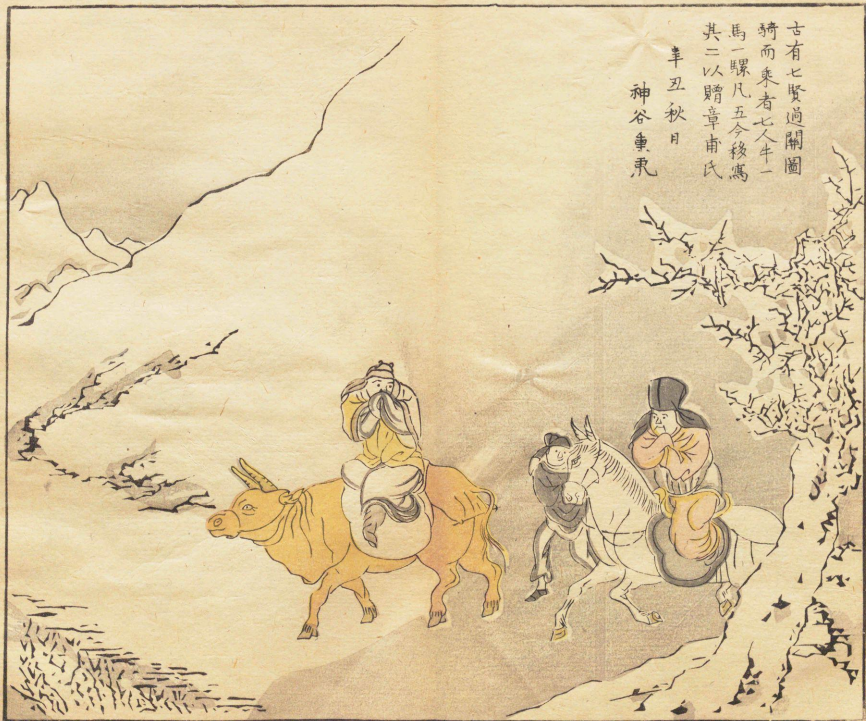 古有七賢過關圖
騎而乘者七人牛一
馬一騾凡五今移寫
其二以贈章甫氏
辛丑秋月
神谷